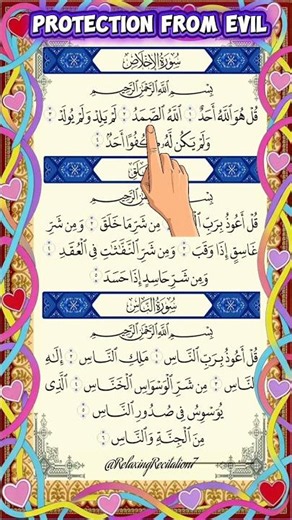 PROTECTION FROM EVIL
سُورَةُ الإِخْلَاصِ
بِسْمِ اللَّهِ الرَّحْمَٰنِ الرَّحِيمِ
قُلْ هُوَ اللَّهُ أَحَدٌ ۝ اللَّهُ الصَّمَدُ ۝ لَمْ يَلِدْ وَلَمْ يُولَدْ ۝
وَلَمْ يَكُن لَّهُ كُفُوًا أَحَدٌ ۝
بِسْمِ اللَّهِ الرَّحْمَٰنِ الرَّحِيمِ
قُلْ أَعُوذُ بِرَبِّ ۝ مِن شَرِّ مَا خَلَقَ ۝ وَمِن شَرِّ
غَاسِقٍ إِذَا وَقَبَ ۝ وَمِن شَرِّ النَّفَّاثَاتِ فِي الْعُقَدِ ۝
وَمِن شَرِّ حَاسِدٍ إِذَا حَسَدَ ۝
سُورَةُ النَّاسِ
بِسْمِ اللَّهِ الرَّحْمَٰنِ الرَّحِيمِ
قُلْ أَعُوذُ بِرَبِّ النَّاسِ ۝ مَلِكِ النَّاسِ ۝ إِلَٰهِ
النَّاسِ ۝ مِن شَرِّ الْوَسْوَاسِ الْخَنَّاسِ ۝ الَّذِي
يُوَسْوِسُ فِي صُدُورِ النَّاسِ ۝
مِنَ الْجِنَّةِ وَالنَّاسِ ۝
@RelaxingRecitation7